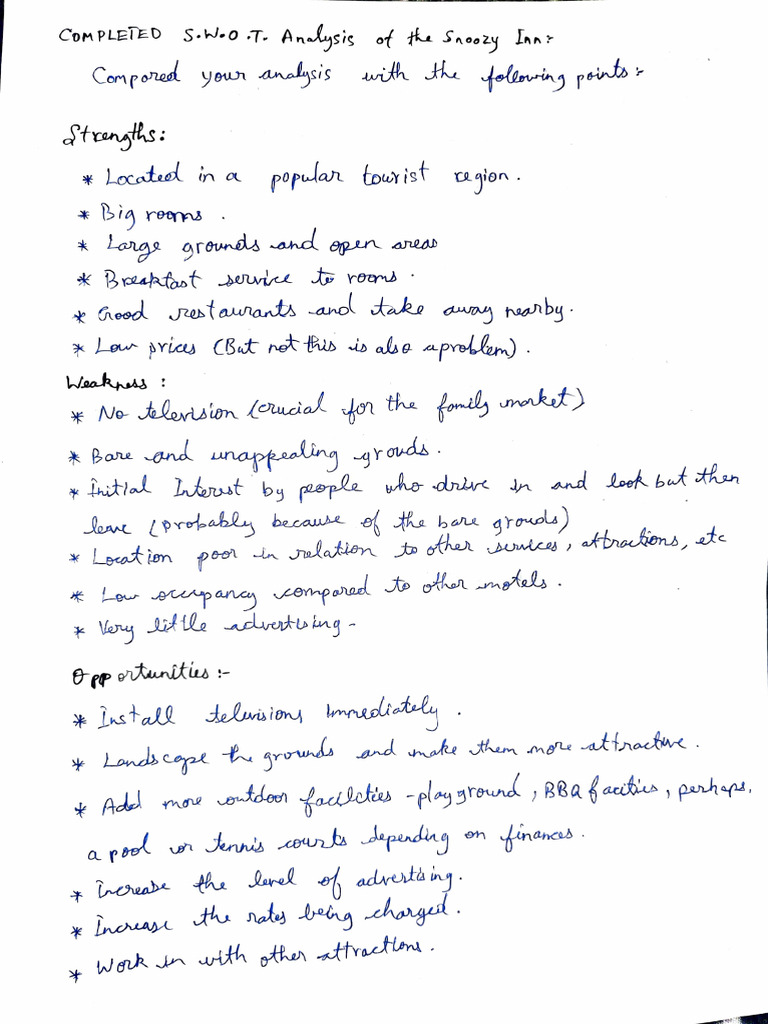 COMPLETED S.W.O.T. Analysis of the Snoozy Inn:-
Compared your analysis with the following points:-
Strengths:
* Located in a popular tourist region.
* Big rooms.
* Large grounds and open areas
* Breakfast service to rooms.
* Good restaurants and take away nearby.
* Low prices (But not this is also a problem).
Weakness:
* No television (crucial for the family market)
* Bare and unappealing grouds.
* Initial Interest by people who drive in and look but then
leave (probably because of the bare grouds)
* Location poor in relation to other services, attractions, etc
* Low occupancy compared to other motels.
* Very little advertising-
Opportunities:-
* Install televisions Immediately.
* Landscape the grounds and make them more attractive.
* Add more outdoor facilcties - playground, BBQ facities, perhaps,
a pool or tennis courts depending on finances.
* Increase the level of advertising.
* Increase the rates being charged.
* Work in with other attractions.